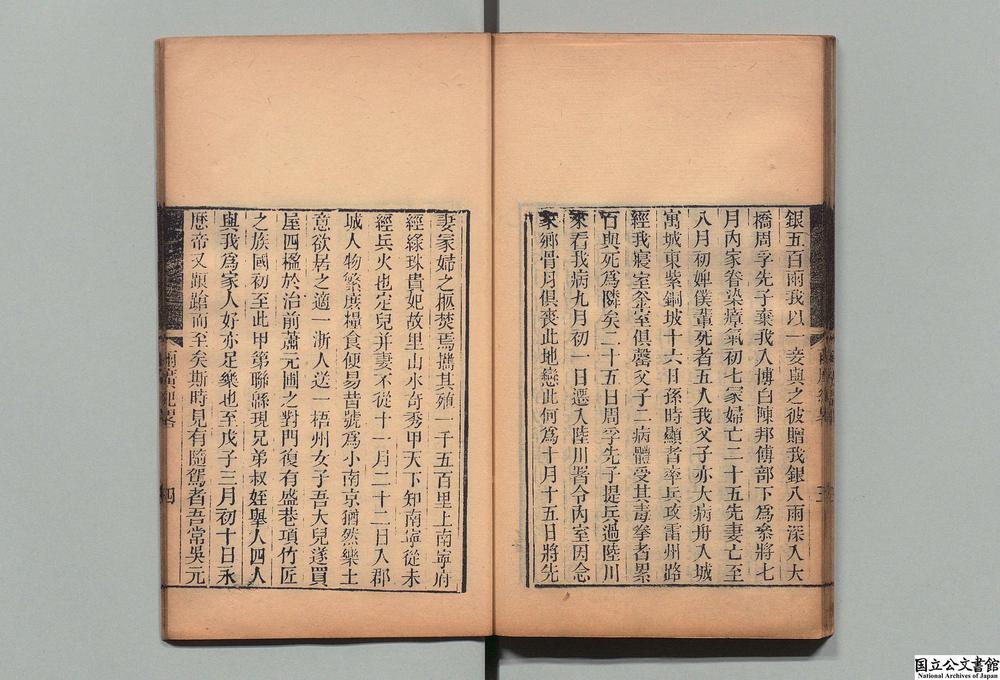 銀五百兩我以一妾與之彼贈我銀八兩深入大
橋周孚先子棄我入博白陳邦傅部下爲叅將七
月內家眷染瘴氣初七家婦亡二十五先妻亡至
八月初婢僕輩死者五人我父子亦大病舟入城
寓城東紫銅坡十六日孫時顯者率兵攻雷州路
經我寢室衾室俱罄父子二病體受其毒拳者累
百與死爲隣矣二十五日周孚先子提兵過陸川
來看我病九月初一日遷入陸川署令內室因念
家鄉骨月俱喪此地戀此何爲十月十五日將先
妻家婦之柩焚焉攜其殖一千五百里上南寧府
經綠珠貴妃故里山水奇秀甲天下知南寧從未
經兵火也定兒并妻不從十一月二十二日入郡
城人物繁庶糧食便易昔號爲小南京猶然樂土
意欲居之適一浙人送一梧州女子吾大兒遂買
屋四楹於治前蕭元圃之對門復有盛巷項竹匠
之族國初至此甲第聯緜現兄弟叔姪舉人四人
與我爲家人好亦足樂也至戊子三月初十日永
曆帝又踉蹌而至矣斯時見有隨駕者吾常吳元
兩廣紀畧
四
三
国立公文書館
National Archives of Japan